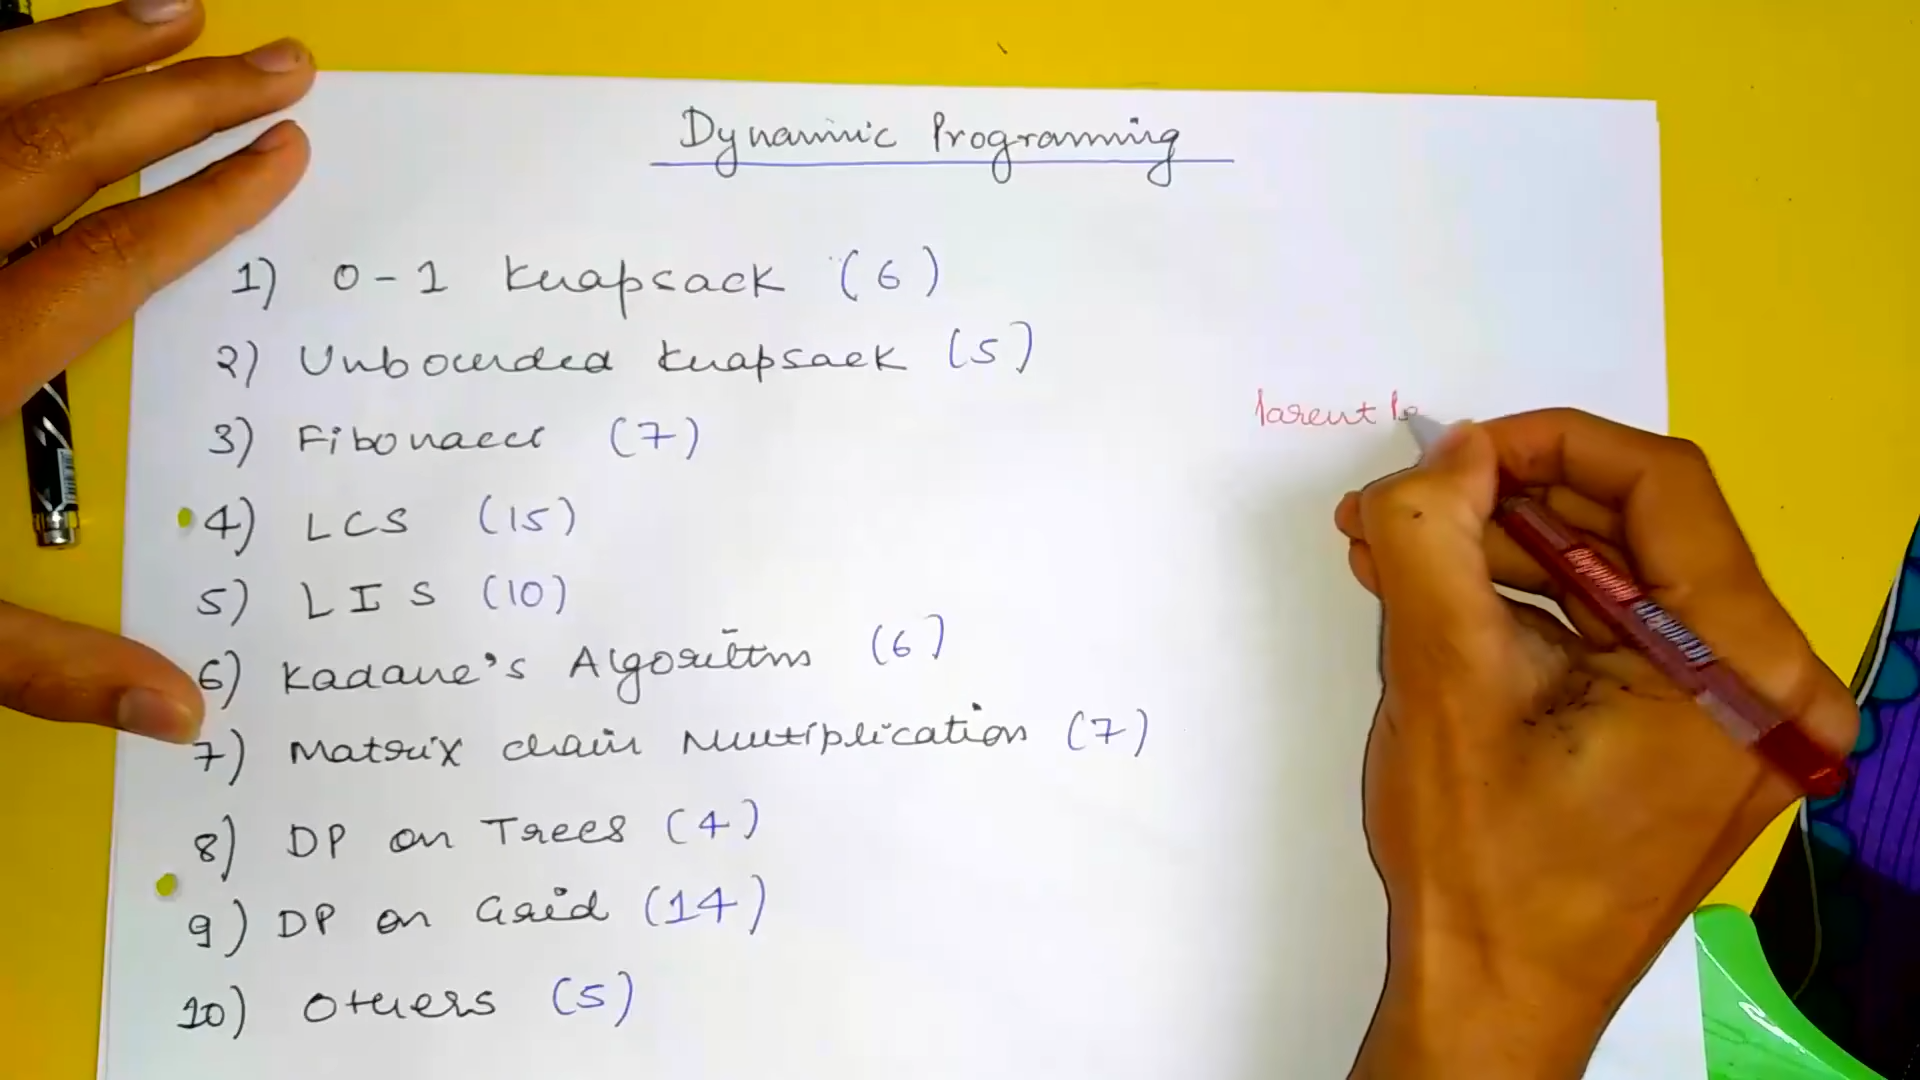 Dynamic Programming
1) 0-1 Knapsack (6)
2) Unbounded Knapsack (5)
3) Fibonacci (7)
Parent
4) LCS (15)
5) LIS (10)
6) Kadane's Algorithm (6)
7) Matrix chain Multiplication (7)
8) DP on Trees (4)
9) DP on Grid (14)
10) Others (5)